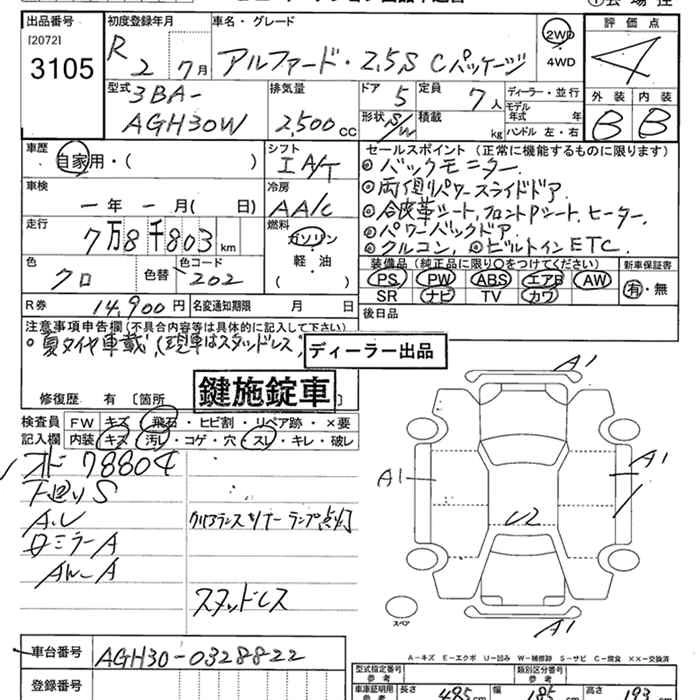 出品番号
[2072]
3105
初度登録年月
R 2 7月
車名・グレード
アルファード・2.5S Cパッケージ
2WD
4WD
評価点
4
外装 内装
B B
型式
3BA-
AGH30W
排気量
2,500cc
ドア 5
定員 7人
形状 S/W
積載 kg
ディーラー・並行
モデル年式 年
ハンドル 左・右
車歴
自家用・( )
シフト
IA/T
車検
ー年ー月( 日)
冷房
AA/C
走行
7万8千803km
燃料
ガソリン
軽・油
( )
色
クロ
色替
色コード
202
R券 14,900円
名変通知期限 月 日
セールスポイント (正常に機能するものに限ります)
◎バックモニター.
◎両側パワースライドドア.
◎合皮革シート,フロントPシート,ヒーター.
◎パワーバックドア.
◎クルコン, ◎ビルトインETC.
装備品(純正品に限り○をつけてください)
PS PW ABS エアB AW
SR ナビ TV カワ
新車保証書
有・無
後日品
注意事項申告欄(不具合内容等は具体的に記入して下さい)
○夏タイヤ車載(現車はスタッドレス)
ディーラー出品
修復歴 有 [箇所
鍵施錠車
検査員記入欄
FW キズ・飛石・ヒビ割・リペア跡・×要
内装 キズ・汚レ・コゲ・穴・スレ・キレ・破レ
オド 78804
下廻りS
A.U
ロミラーA
AW-A
クリアランスソナーランプ点灯
スタッドレス
A1
A1
A1
U2
A1
スペア
A-キズ E-エクボ U-凹み W-補修跡 S-サビ C-腐食 XX-交換済
車台番号 AGH30-0328822
登録番号
型式指定番号 参考
類別区分番号 参考
車庫証明用 参考
長さ 495cm 幅 185cm 高さ 193cm